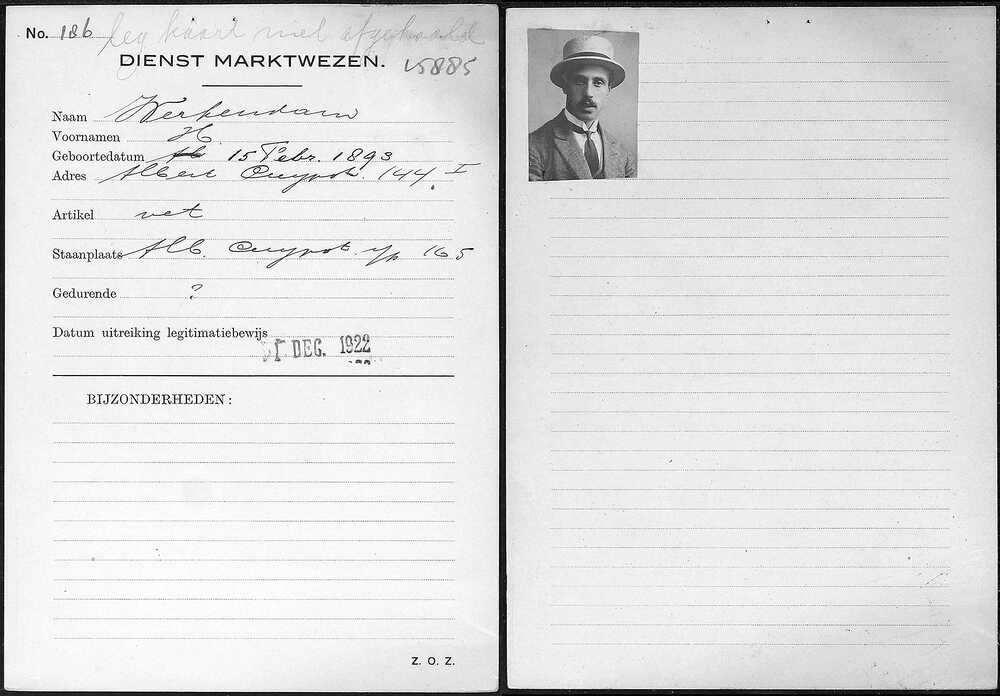 No. 186 leg kaart niet afgehaald
DIENST MARKTWEZEN. 15885
Naam Werkendam
Voornamen H.
Geboortedatum 15 Febr. 1893
Adres Albert Cuypst. 144 I
Artikel vet
Staanplaats Alb. Cuypst. 165
Gedurende ?
Datum uitreiking legitimatiebewijs
DEC. 1922
BIJZONDERHEDEN:
Z. O. Z.